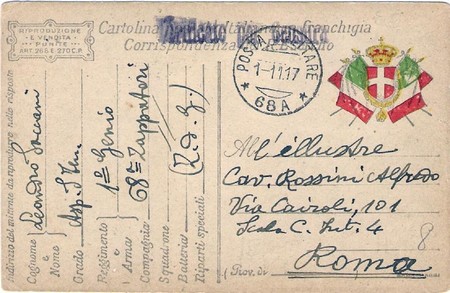 RIPRODUZIONE
E VENDITA
PUNITE
ART. 266 E 270 C.P.
Cartolina in franchigia
Corrispondenza
POSTA MILITARE
1-11.17
68A
All'illustre
Cav. Rossini Alfredo
Via Cairoli, 101
Scala C. Int. 4
(Prov. di Roma
8
Indirizzo del mittente da riprodurre nella risposta
Cognome e Nome Leandro
Grado Asp.
Reggimento e Arma 1º Genio
Compagnia 68ª Zappatori
Squadrone
Batteria
Riparti speciali (Z. d. G.)